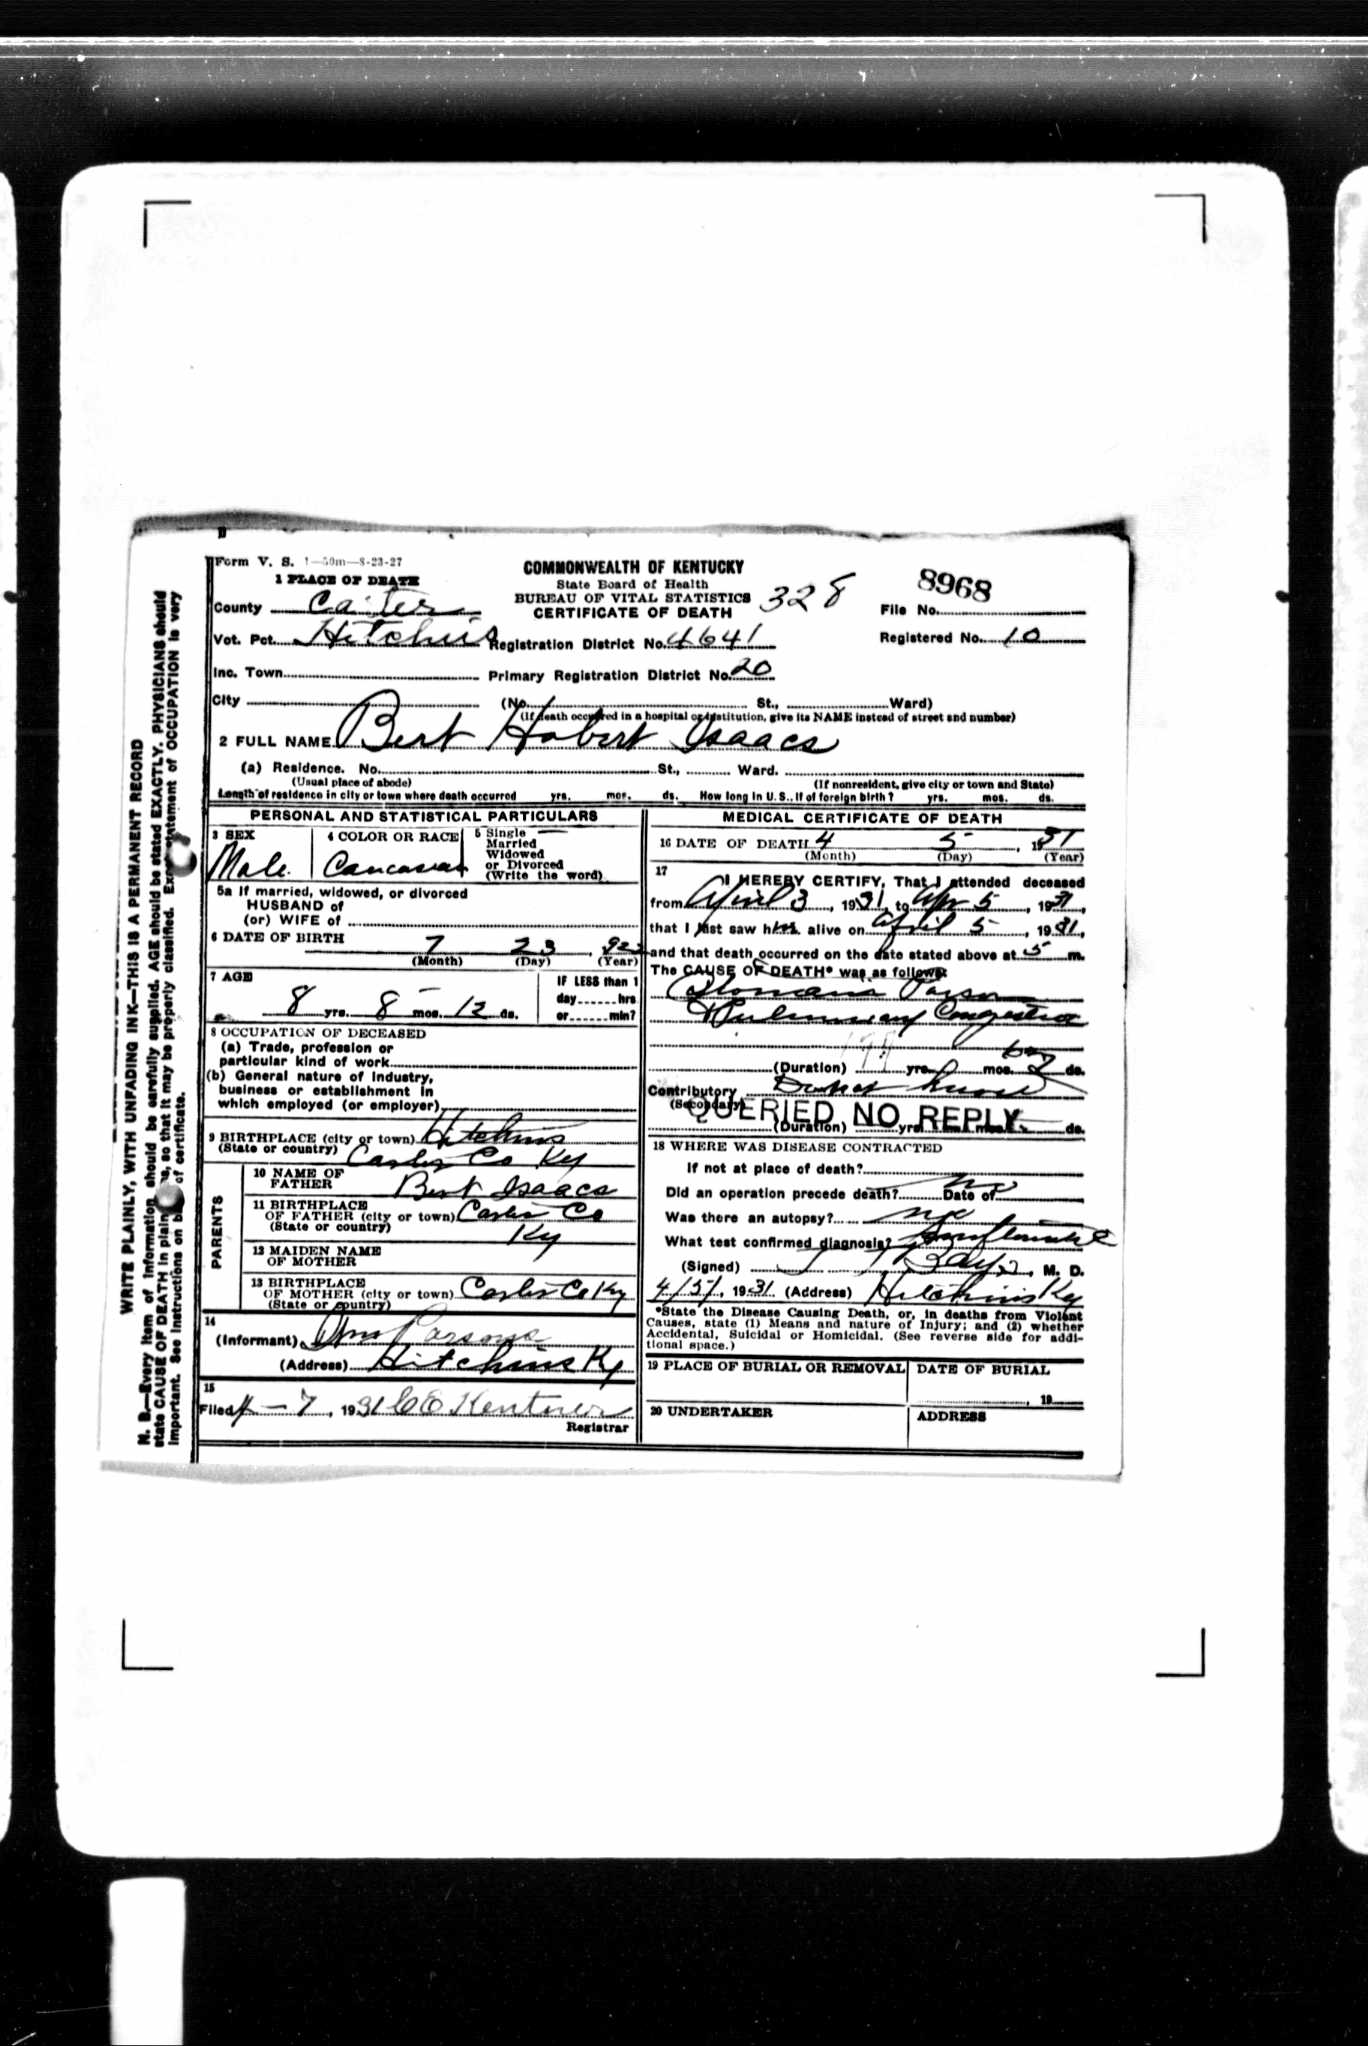 Form V. S. 1—50m—8-23-27
COMMONWEALTH OF KENTUCKY
State Board of Health
BUREAU OF VITAL STATISTICS
CERTIFICATE OF DEATH
328
8968
File No.
Registered No. 10
1 PLACE OF DEATH
County Carter
Vot. Pct. Hitchins Registration District No. 4641
Inc. Town Primary Registration District No. 20
City (No. St., Ward)
(If death occurred in a hospital or institution, give its NAME instead of street and number)
2 FULL NAME Bert Hobert Isaacs
(a) Residence. No. St., Ward.
(Usual place of abode) (If nonresident, give city or town and State)
Length of residence in city or town where death occurred yrs. mos. ds. How long in U. S., if of foreign birth? yrs. mos. ds.
PERSONAL AND STATISTICAL PARTICULARS
3 SEX
Male
4 COLOR OR RACE
Caucasian
5 Single
Married
Widowed
or Divorced
(Write the word)
5a If married, widowed, or divorced
HUSBAND of
(or) WIFE of
6 DATE OF BIRTH
7 23, 922
(Month) (Day) (Year)
7 AGE
8 yrs. 8 mos. 12 ds.
IF LESS than 1
day hrs
or min?
8 OCCUPATION OF DECEASED
(a) Trade, profession or
particular kind of work
(b) General nature of industry,
business or establishment in
which employed (or employer)
9 BIRTHPLACE (city or town) Hitchins
(State or country) Carter Co Ky
PARENTS
10 NAME OF
FATHER Bert Isaacs
11 BIRTHPLACE
OF FATHER (city or town) Carter Co
(State or country) Ky
12 MAIDEN NAME
OF MOTHER
13 BIRTHPLACE
OF MOTHER (city or town) Carter Co Ky
(State or country)
14
(Informant) Parsons
(Address) Hitchins Ky
15
Filed 4-7, 1931 C E Kentner
Registrar
MEDICAL CERTIFICATE OF DEATH
16 DATE OF DEATH 4 5, 1931
(Month) (Day) (Year)
17
I HEREBY CERTIFY, That I attended deceased
from April 3, 1931, to Apr 5, 1931,
that I last saw him alive on April 5, 1931,
and that death occurred on the date stated above at 5 m.
The CAUSE OF DEATH* was as follows:
Pulmonary Congestion
(Duration) yrs. mos. 2 ds.
Contributory
(Secondary)
QUERIED NO REPLY.
(Duration) yrs. mos. ds.
18 WHERE WAS DISEASE CONTRACTED
If not at place of death?
Did an operation precede death? no Date of
Was there an autopsy? no
What test confirmed diagnosis?
(Signed) , M. D.
4/5/, 1931 (Address) Hitchins Ky
*State the Disease Causing Death, or, in deaths from Violent
Causes, state (1) Means and nature of Injury; and (2) whether
Accidental, Suicidal or Homicidal. (See reverse side for addi-
tional space.)
19 PLACE OF BURIAL OR REMOVAL DATE OF BURIAL
, 19
20 UNDERTAKER ADDRESS
WRITE PLAINLY, WITH UNFADING INK—THIS IS A PERMANENT RECORD
N. B.—Every item of information should be carefully supplied. AGE should be stated EXACTLY. PHYSICIANS should
state CAUSE OF DEATH in plain so that it may be properly classified. statement of OCCUPATION is very
important. See instructions on of certificate.